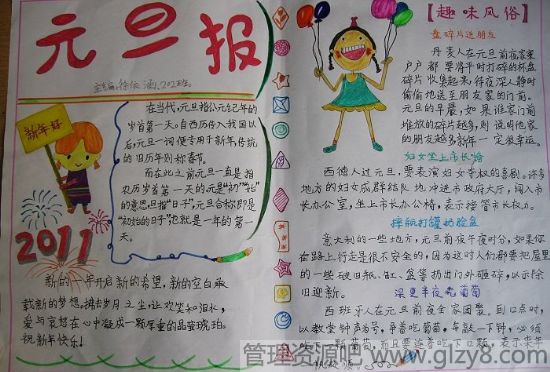 元旦报
主编:徐 涵,202班。
新年好
2011
在当代,元旦指公元纪年的
岁首第一天。自西历传入我国以
后,元旦一词便专用于新年,传统
的旧历年则称春节。
而在此之前元旦一直是指
农历岁首第一天的。元是"初""始"
的意思,旦指"日子",元旦合称即是
"初始的日子",也就是一年的第一
天。
新的一年开启新的希望,新的空白承
载新的梦想。拂去岁月之尘,让欢笑和泪水,
爱与哀愁在心中凝成一颗厚重的晶莹琥珀。
祝新年快乐!
【趣味风俗】
盘碎片送朋友
丹麦人在元旦前夜家家
户户都要将平时打碎的杯盘
碎片收集起来,待夜深人静时
偷偷地送至朋友家的门前。
元旦的早晨,如果谁家门前
堆放的碎片越多,则说明他家
的朋友越多新年一定很幸运。
妇女坐上市长椅
西德人过元旦,要表演妇女夺权的喜剧。许多
地方的妇女成群结队地冲进市政大厅,闯入市
长办公室,坐上市长办公椅,表示接管市长权力。
摔瓶打罐扔脸盆
意大利的一些地方,元旦前夜午夜时分,如果你
在路上行走是很不安全的,因为这时人们都要把屋里
的一些破旧瓶、缸、盆等扔出门外砸碎,以示除
旧迎新。
深更半夜吃葡萄
西班牙人在元旦前夜全家团聚,到12点时,
以教堂钟声为号,争着吃葡萄,每敲一下钟,必须
吃下一颗葡萄,而且要连着吃下12颗,表示来年
管理资源吧 www.glzy8.com